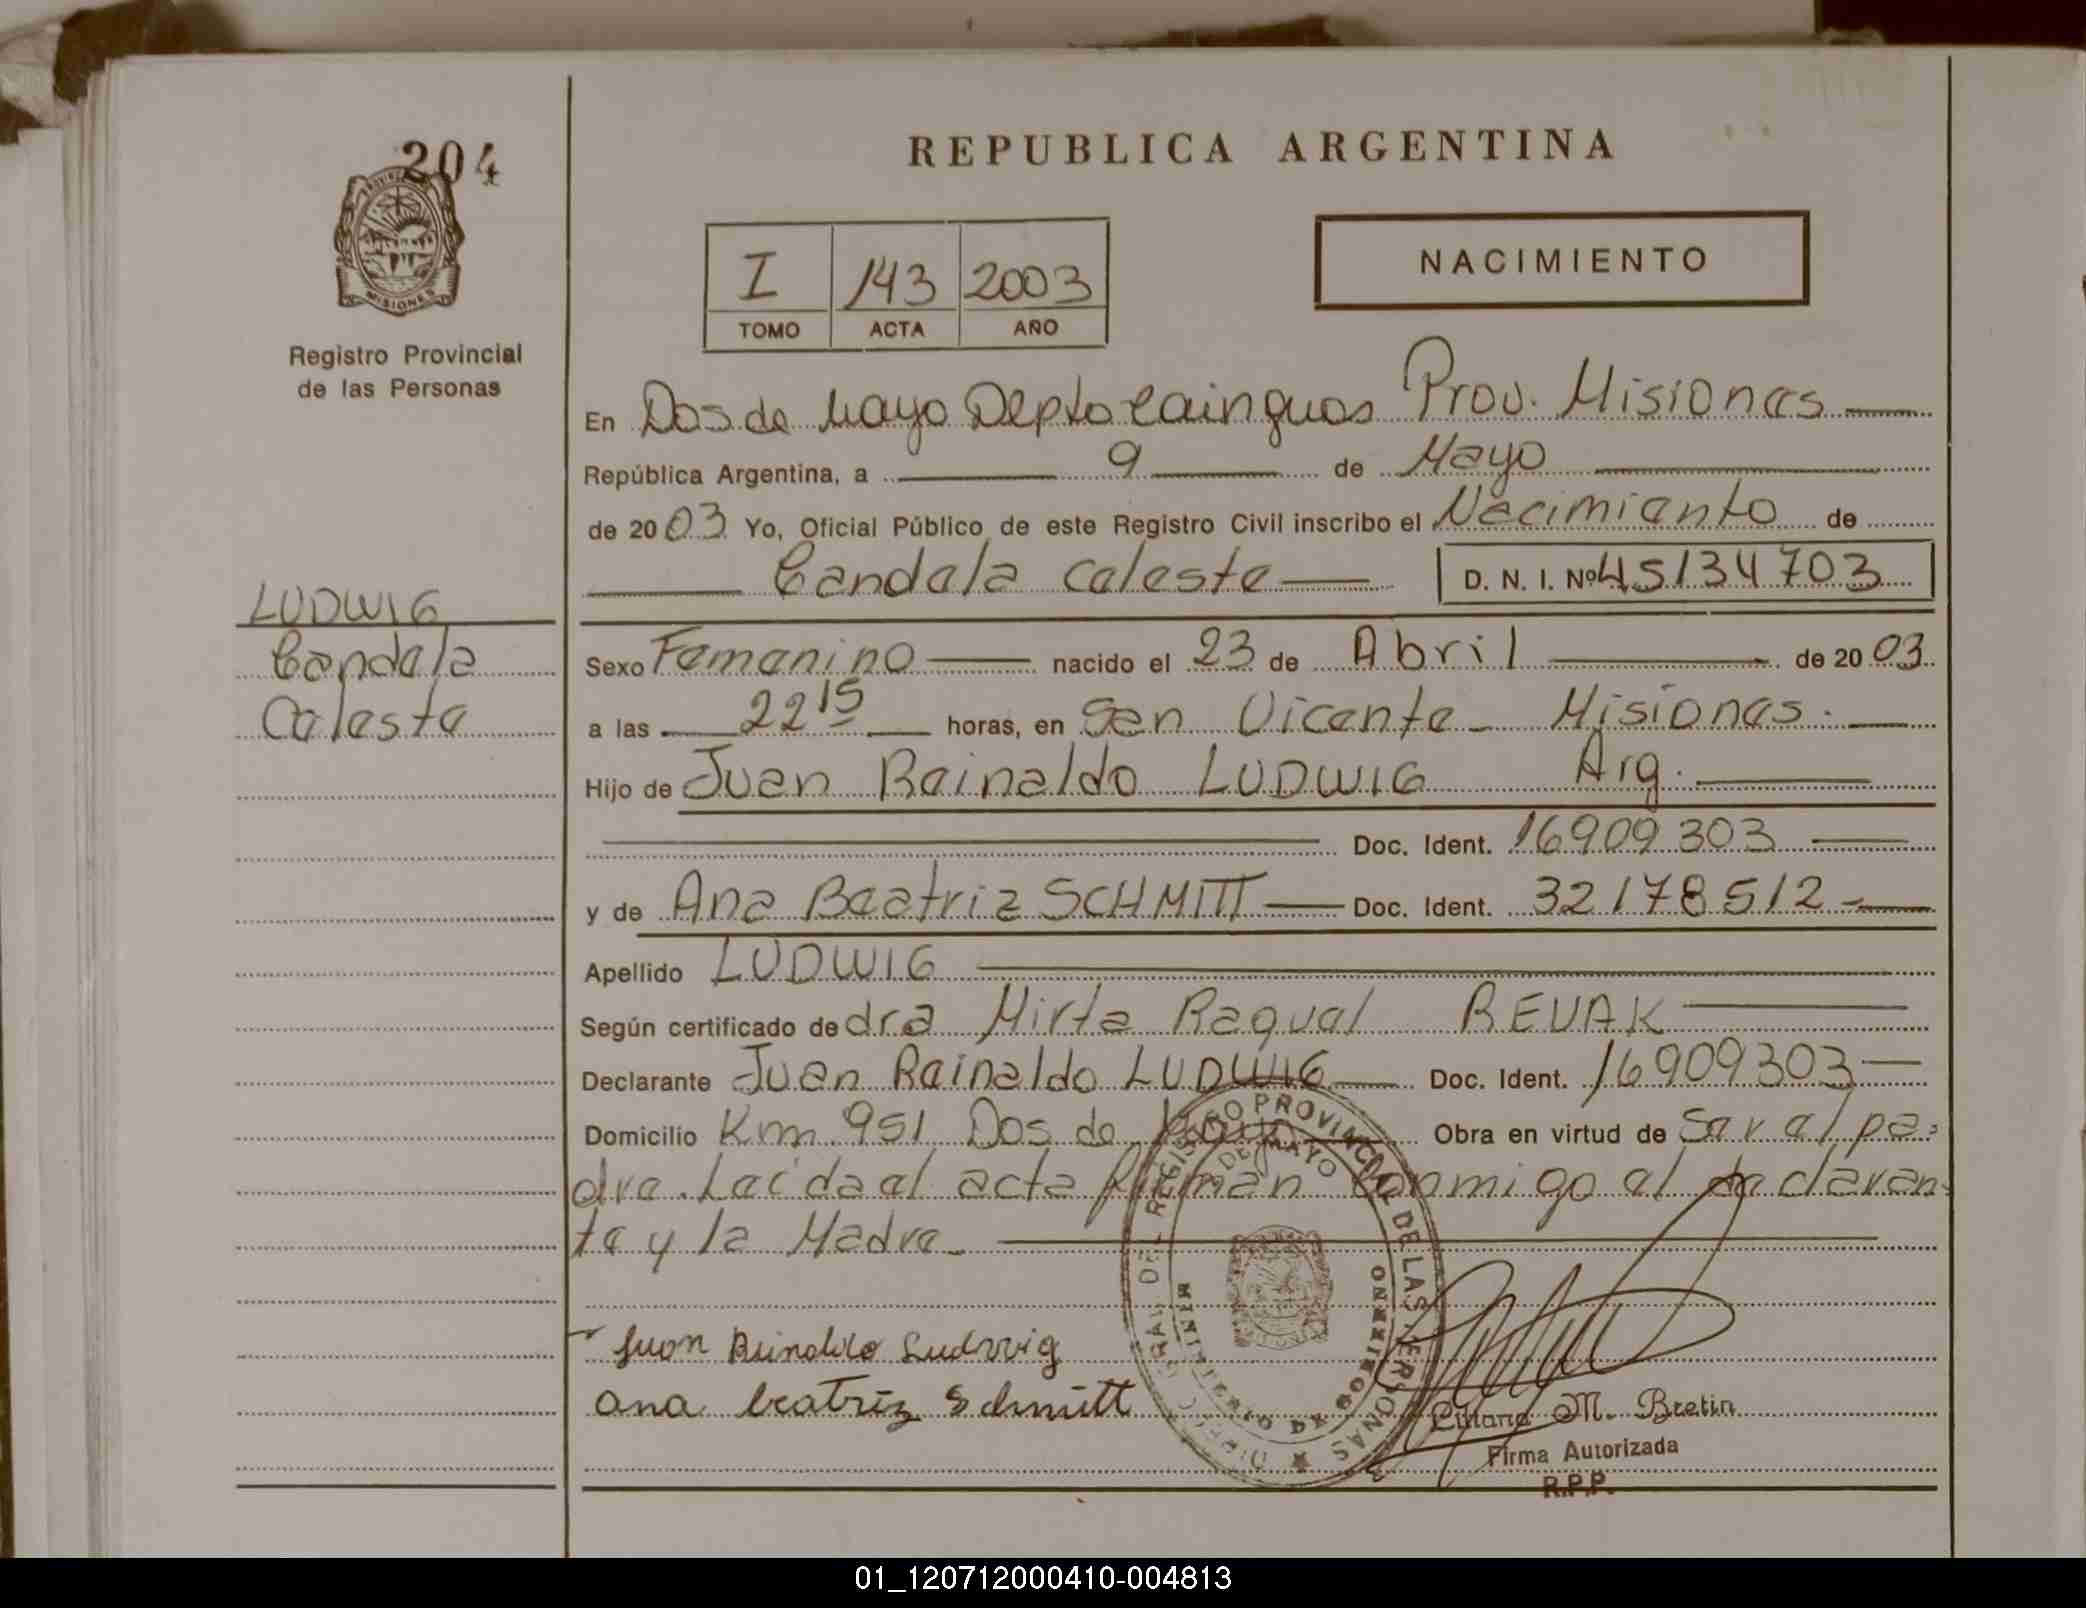 204
REPUBLICA ARGENTINA
PROVINCIA DE MISIONES
Registro Provincial
de las Personas
I 143 2003
TOMO ACTA AÑO
NACIMIENTO
En Dos de Mayo Depto Cainguas Prov. Misiones
República Argentina, a 9 de Mayo
de 2003 Yo, Oficial Público de este Registro Civil inscribo el Nacimiento de
Candela Celeste D. N. I. Nº 45134703
LUDWIG
Candela
Celeste
Sexo Femenino nacido el 23 de Abril de 2003
a las 22 15 horas, en San Vicente - Misiones.
Hijo de Juan Reinaldo LUDWIG Arg.
Doc. Ident. 16909303
y de Ana Beatriz SCHMITT Doc. Ident. 32178512
Apellido LUDWIG
Según certificado de dra Mirta Raquel REVAK
Declarante Juan Reinaldo LUDWIG Doc. Ident. 16909303
Domicilio Km 951 Dos de Mayo Obra en virtud de Ser el pa-
dre. Leída el acta firman conmigo el declaran-
te y la Madre.
Juan Reinaldo Ludwig
ana beatriz Schmitt
DIREC. GRAL. DEL REGISTRO PROVINCIAL DE LAS PERSONAS
DE MAYO
MINISTERIO DE GOBIERNO
M. Bretin
Firma Autorizada
R.P.P.
01_120712000410-004813